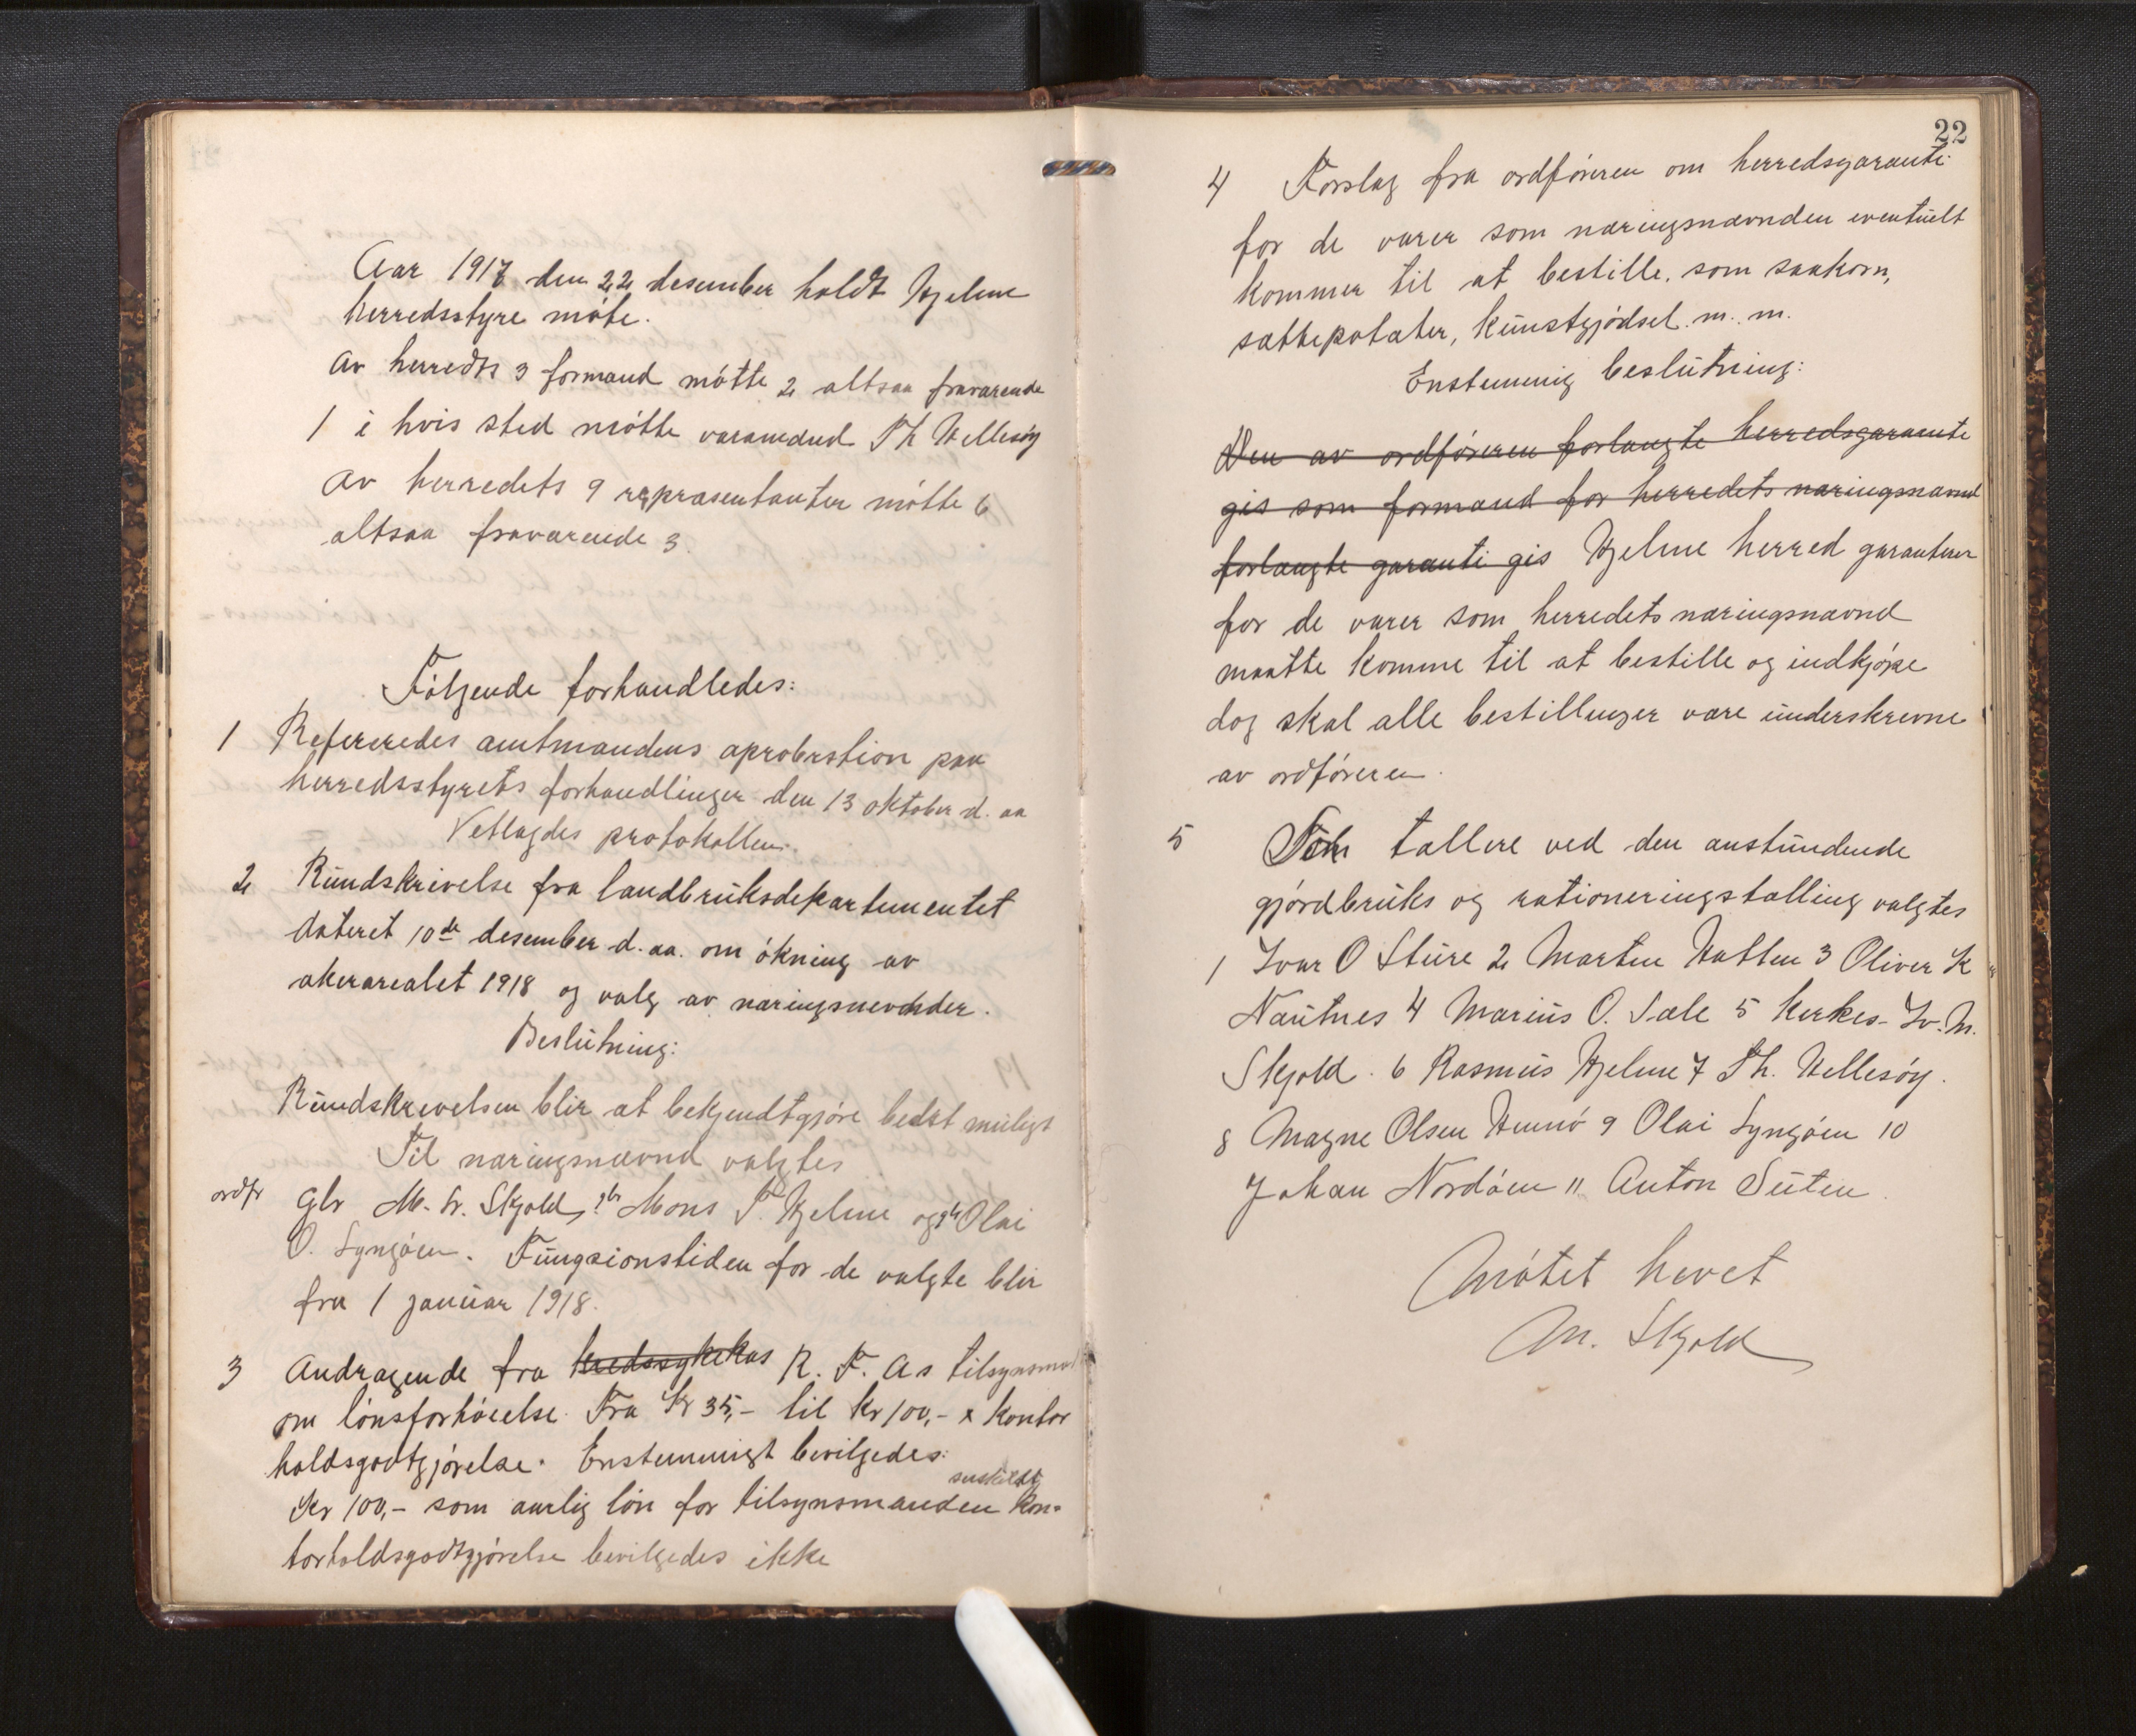 Aar 1917 den 22 desember holdt Hjelme
herredsstyre møte.
Av herredts 3 formænd møtte 2 altsaa fraværende
1 i hvis sted møtte varamdnd Th Hellesøy
Av herredets 9 repræsentanter møtte 6
altsaa fraværende 3.
Følgende forhandledes:
1 Refereredes amtmandens aprobration paa
herredsstyrets forhandlinger den 13 oktober d. aa
Vetlagdes protokollen.
2 Rundskrivelse fra landbruksdepartementet
dateret 10de desember d. aa. om økning av
akerarealet 1918 og valg av næringsnevnder.
Beslutning:
Rundskrivelsen blir at bekjendtgjøre bedst muligt
Til næringsnævnd valgtes
ordfr Gbr M. Iv. Skjold, gbr Mons T. Hjelme og gbr Olai
O. Syngøen. Fungsionstiden for de valgte blir
fra 1 januar 1918.
3 Andragende fra kredssykekas R. F. As tilsynsmand
om lønsforhøielse. Fra Kr 35,- til Kr 100,- x kontor
holdsgodtgjørelse. Enstemmigt bevilgedes:
særskildt
Kr 100,- som aarlig løn for tilsynsmanden kon-
torholdsgodtgjørelse bevilgedes ikke
22
4 Forslag fra ordføreren om herredsgaranti
for de varer som næringsnævnden eventuelt
kommer til at bestille, som saakorn,
sættepotater, kunstgjødsel m. m.
Enstemmig beslutning:
Den av ordføreren forlangte herredsgarante
gis som formand for herredets næringsnævnd
forlangte garanti gis Hjelme herred garanterer
for de varer som herredets næringsnævnd
maatte komme til at bestille og indkjøpe
dog skal alle bestillinger være underskrevne
av ordføreren.
5 Som tællere ved den anstundende
gjordbruks og rationeringstælling valgtes
1 Ivar O Sture 2 Marten Hatten 3 Oliver K
Nautnes 4 Marius O. Sæle 5 Kirkes. Iv. M.
Skjold. 6 Rasmus Hjelme 7 Th. Hellesøy.
8 Magne Olsen Hernø 9 Olai Syngøen 10
Johan Nordøen 11 Anton Suten.
Møtet hevet
M. Skjold